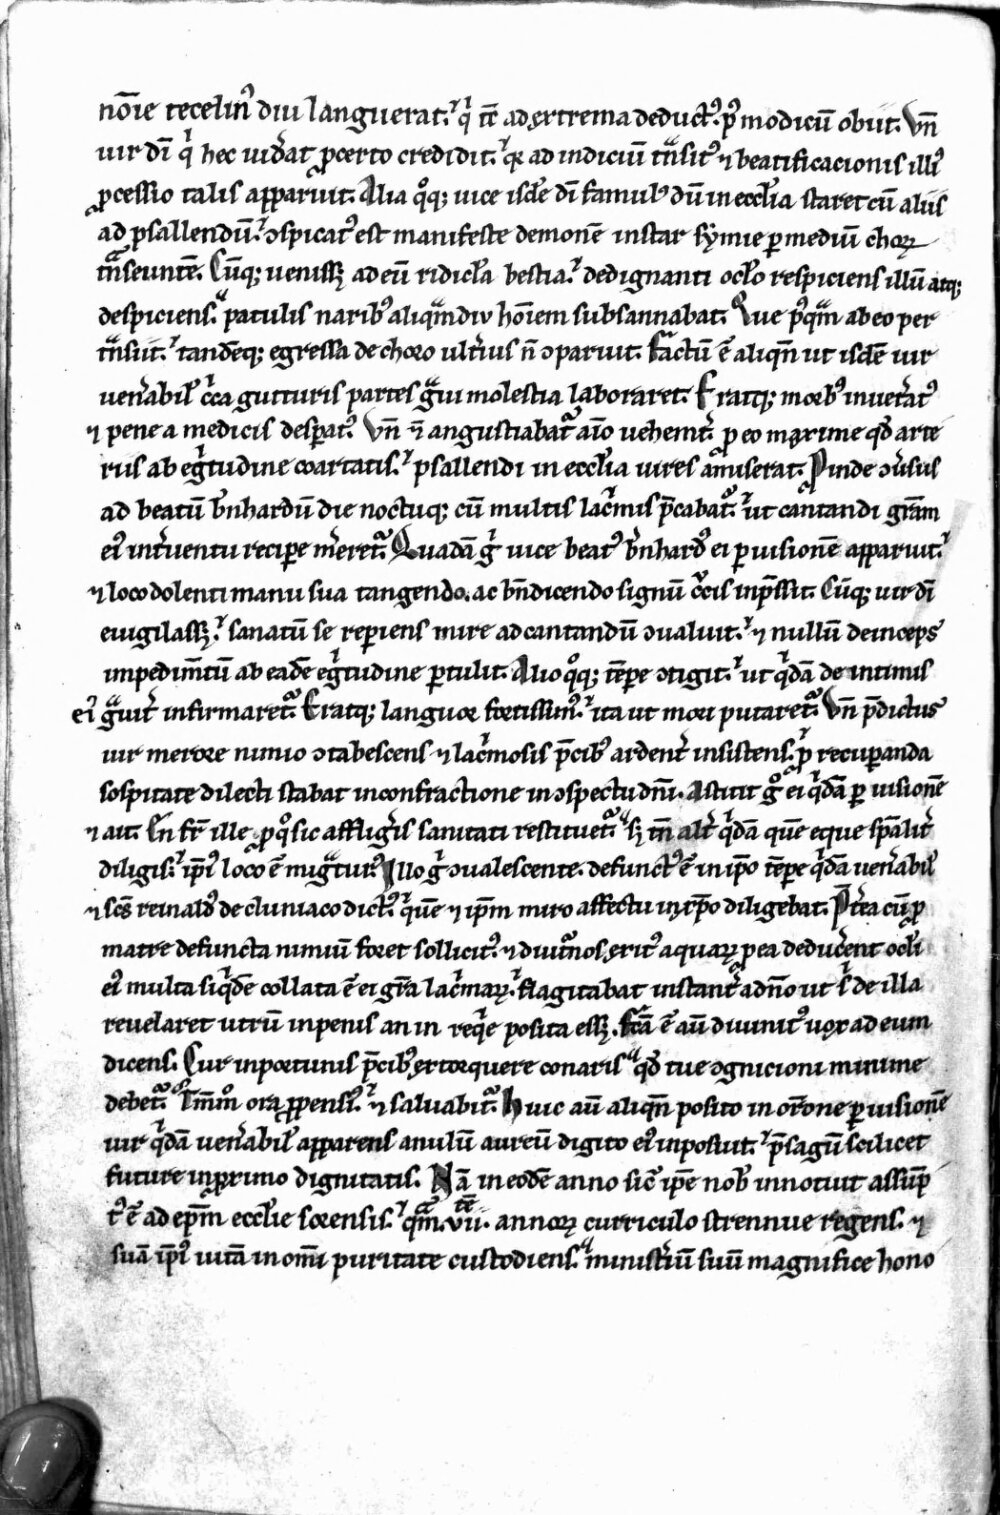 nōıe tecelinꝰ diu languerat. qͥ tc̄ ad extrema deductꝰ. pꝰ modicū obiit. Vn̄
uir dı̄ qͥ hec uid̓at ꝓcerto credidit. qꝛ ad indiciū tͣnsitꝰ ⁊ beatificacionis illiꝰ
ꝓcessio talis apparuit. Alia qͦq; uice isdē dı̄ famulꝰ dū in eccl̓ia staret cū aliis
ad psallendū. ꝯspicatꝰ est manifeste demonē instar symie ꝑ mediū choꝝ
tͣnseuntē. Cūq; uenissꝫ ad eū ridicl̓a bestia. dedignanti ocl̓o respiciens illū atq;
despiciens. patulis naribꝰ aliqͣmdiu hōiem subsannabat. Que pꝰqͣm ab eo per
tͣnsiit. tandēq; egressa de choro ult̓ius n̄ ꝯparuit. Factū ē aliqn̄ ut isdē uir
uen̓abil̓ cͥca gutturis partes gͣui molestia laboraret. Eratq; morbꝰ inuet̓atꝰ
⁊ pene a medicis desꝑatꝰ. Vn̄ n̄ angustiabatᷣ aı̄o uehemt̓. ꝓ eo maxime qd̓ arte
riis ab eg̓tudine coartatis. psallendi in eccl̓ia uires amiserat. Proinde ꝯu̓sus
ad beatū b̓nhardū die noctuq; cū multis lacͥmis p̄cabatᷣ. ut cantandi gr̄am
eiꝰ int̓uentu reciꝑe m̓eretᷣ. Quadā gͥ uice beatꝰ b̓nhardꝰ ei ꝑ uisionē apparuit.
⁊ loco dolenti manu sua tangendo. ac bn̄dicendo signū cͣcis inp̄ssit. Cūq; uir dı̄
euigilassꝫ. sanatū se reꝑiens mire ad cantandū ꝯualuit. ⁊ nullū deinceps
impedim̄tū ab eadē eg̓tudine ꝑtulit. Alio qͦq; tēꝑe ꝯtigit. ut qͥdā de intimis
eiꝰ gͣuit̓ infirmaretᷣ. Eratq; languor fortissimꝰ. ita ut mori putaretᷣ. Vn̄ p̄dictus
uir merore nimio ꝯtabescens ⁊ lacͥmosis p̄cibꝰ ardent̓ insistens. ꝓ recuꝑanda
sospitate dilecti stabat in confractione in ꝯspectu dn̄i. Astitit gͦ ei qͥdā ꝑ uisionē
⁊ ait. En fr̄ ille ꝓ qͦ sic affligͥs sanitati restituetᷣ. sꝫ tn̄ alt̓ qͥdā quē eque spālit̓
diligis. ip̄iꝰ loco ē migͣturꝰ. Illo gͥ ꝯualescente. defunctꝰ ē in ip̄o tēꝑe qͥdā uen̓abil̓
⁊ sc̄s reinaldꝰ de cluniaco dictꝰ. quē ⁊ ip̄m miro affectu in xp̄o diligebat. P̄t̓ea cū ꝓ
matre defuncta nimiū foret sollicitꝰ. ⁊ diutͥnos exitꝰ aquaꝝ ꝓ ea deducͥent ocl̓i
eiꝰ multa siqͥdē collata ē ei gr̄a lacͥmaꝝ. flagitabat instant̓ a dn̄o ut sͥ de illa
reuelaret utrū in penis an in reqͥe posita essꝫ. Fcͣā ē aū diuinitꝰ uox ad eum
dicens. Cur inportunis p̄cibꝰ extorquere conaris qd̓ tue ꝯgnicioni minime
debetᷣ. Im̄mͦ ora ꝓpensiꝰ. ⁊ saluabitᷣ. Huic aū aliqn̄ posito in or̄one ꝑ uisionē
uir qͥdā uen̓abil̓ apparens anulū aureū digito eiꝰ inposuit. p̄sagiū scilicet
future in proximo dignitatis. Nā in eodē anno sicͣ ip̄e nobꝰ innotuit assūp
tꝰ ē ad ep̄m eccl̓ie sorensis. qͣm .vii. annoꝝ curriculo strennue regens. ⁊
suā ip̄iꝰ uitā in omı̄ puritate custodiens. minist̓iū suū magnifice hono